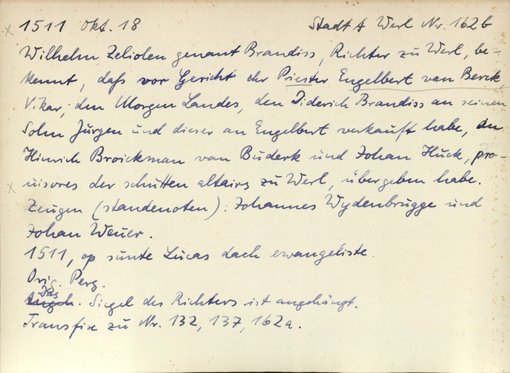 x 1511 Okt. 18 Stadt A Werl Nr. 162b
Wilhelm Zeliolen genant Brandiss, Richter zu Werl, be-
kennt, dass vor Gericht ehr Priester Engelbert van Berck
Vikar, den Morgen Landes, den Diderich Brandiss an seinen
Sohn Jürgen und dieser an Engelbert verkauft habe, an
Hinrich Broickman van Büderk und Johan Huck, pro-
x uisores der schutten altairs zu Werl, übergeben habe.
Zeugen (standenoten): Johannes Wydenbrugge und
Johan Wener.
1511, op sunte Lucas dach ewangeliste.
Orig. Perg.
Das Siegel des Richters ist angehängt.
Transfixe zu Nr. 132, 137, 162a.